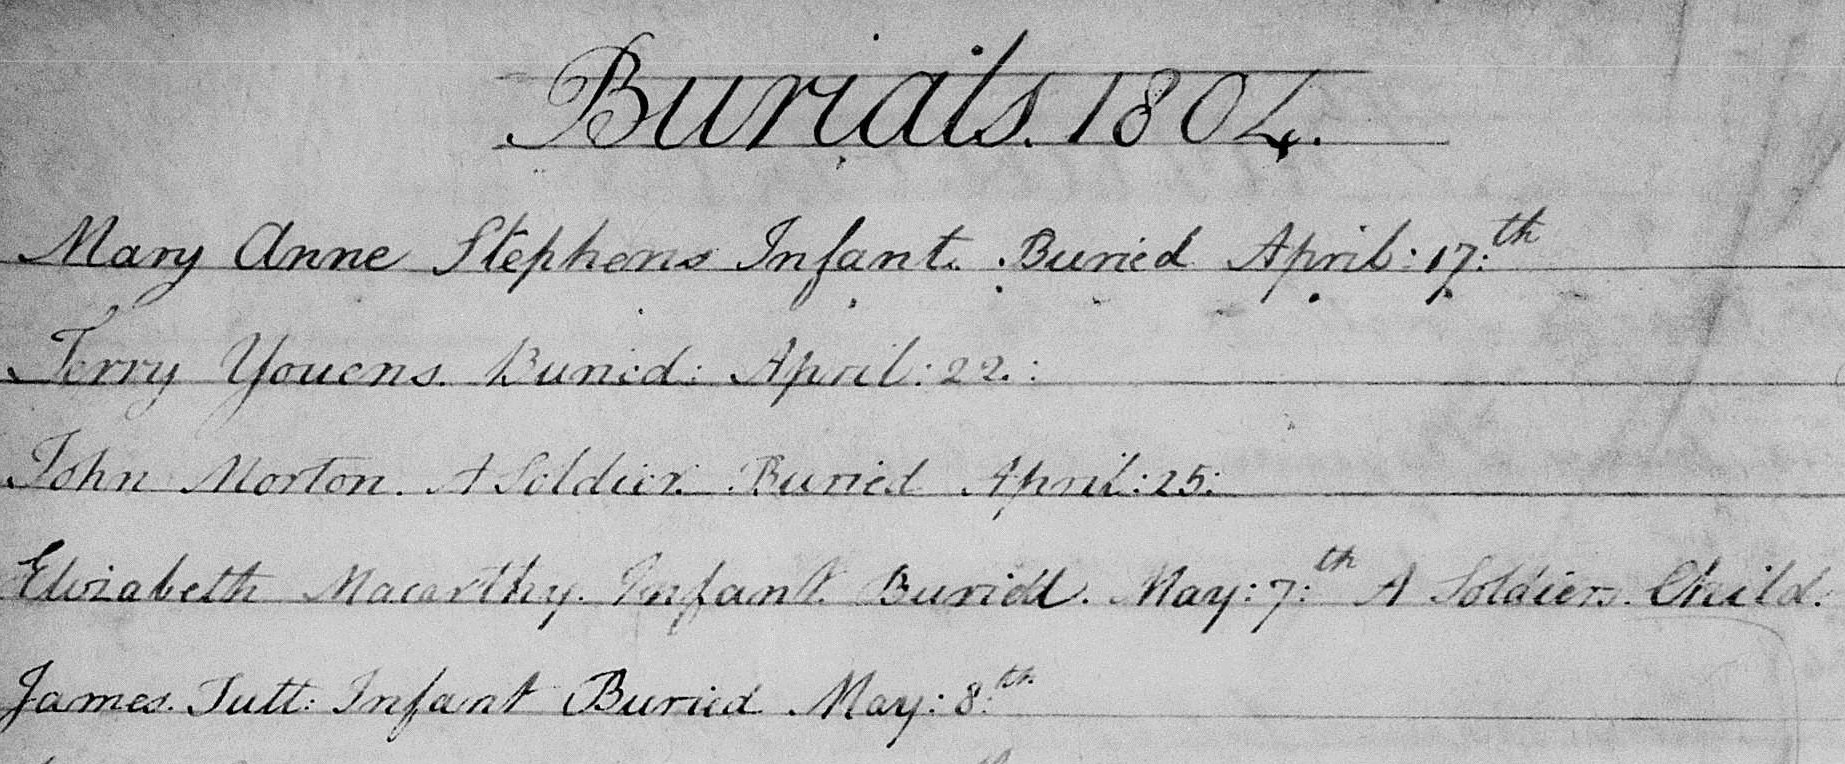 Burials. 1804.
Mary Anne Stephens Infant. Buried April: 17:th
Terry Youens. Buried: April: 22.:
John Morton. A Soldier. Buried April: 25:
Elizabeth Macarthy. Infant. Buried. May: 7:th A Soldiers. Child.
James. Tutt: Infant Buried May: 8:th